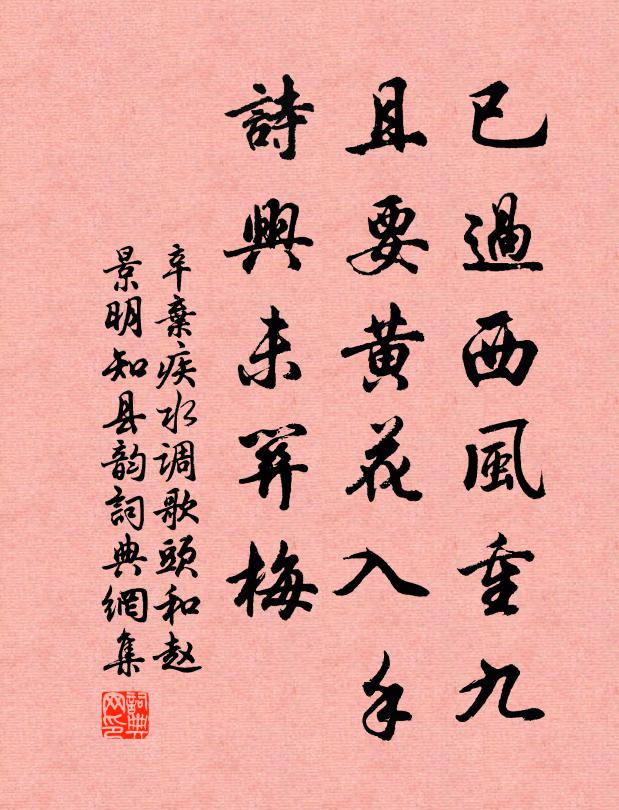 已過西風重九
且要黄花入手
詩興未关梅
辛棄疾水调歌頭和赵
景明知县韵詞典網集
詞典
网印